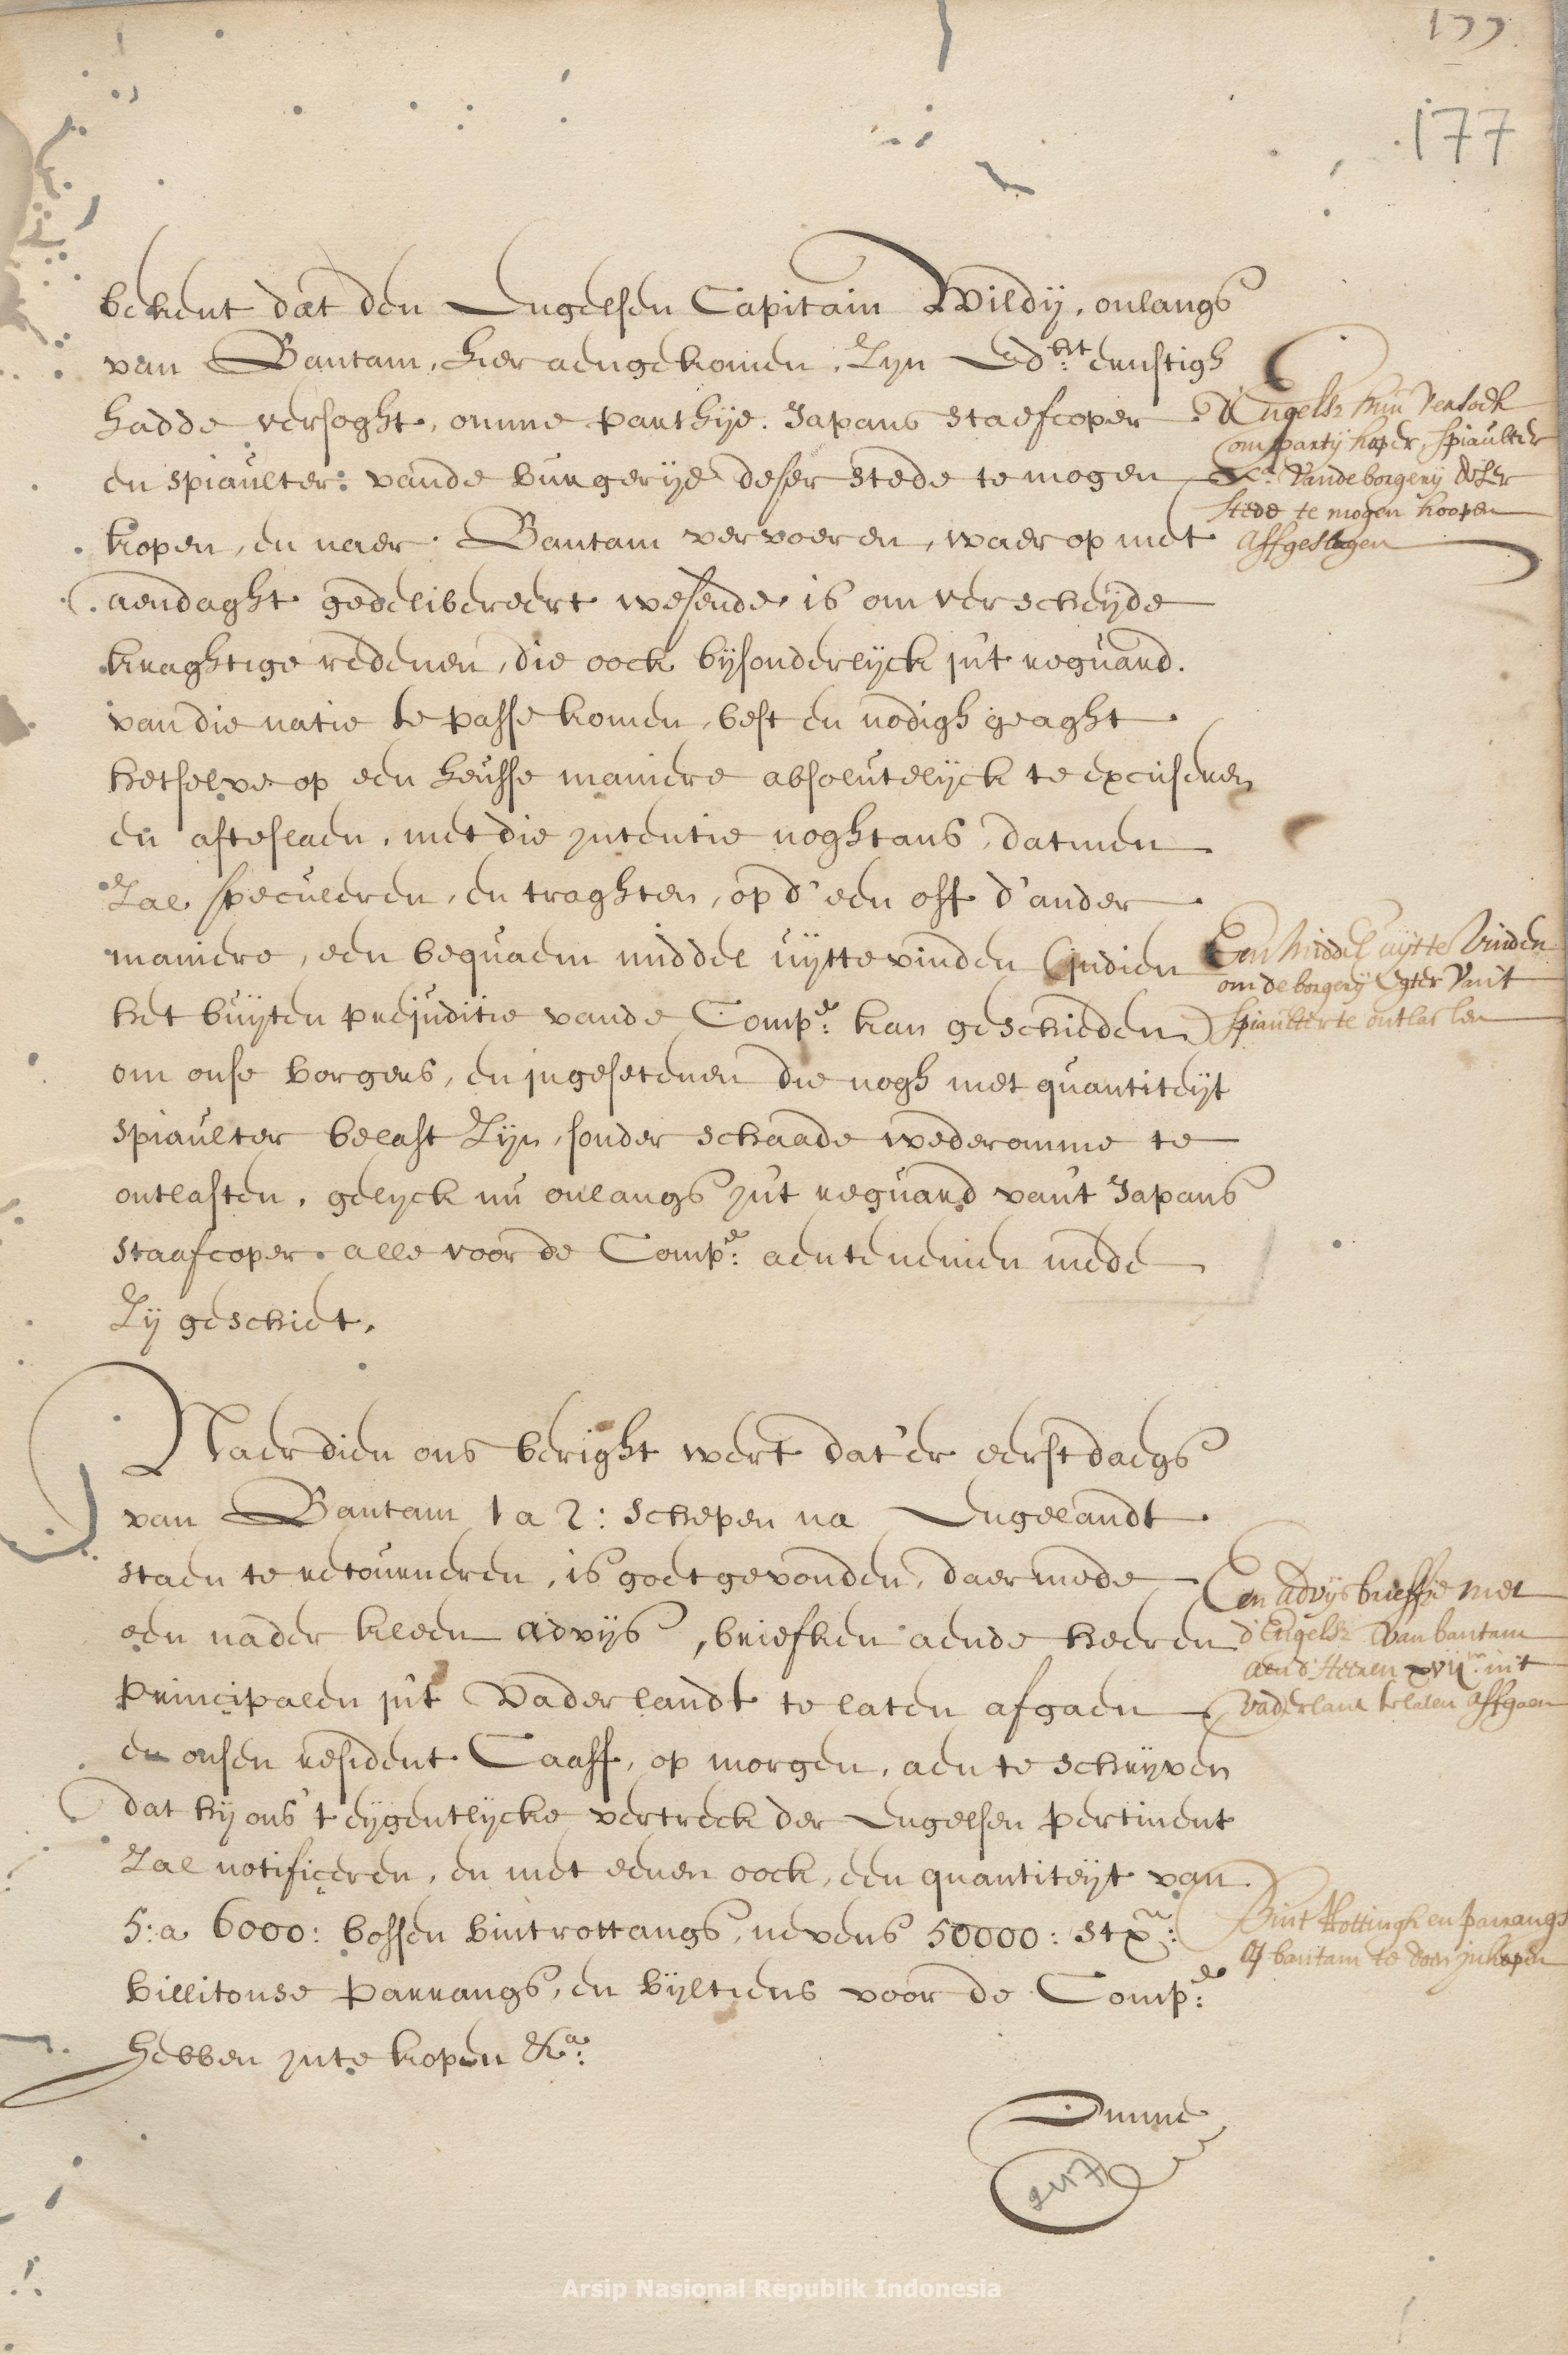 177
177
bekent dat den Engelsen Capitain Wildij, onlangs
van Bantam, hier aengekomen, Zyn Ed:ht ernstigh
hadde versoght, omme parthye Japans staefcoper
en spiaulter: vande burgerye deser stede te mogen
kopen, en naer Bantam vervoeren, waer op met
aendaght gedelibereert wesende is om verscheyde
kraghtige redenen, die oock bysonderlyck in't reguard
van die natie te passe komen, best en nodigh geaght
hetselve op een heusse maniere absolutelyck te excuseren
en afteslaen, met die intentie noghtans, datmen
Zal speculeren, en traghten, op d'een oft d'ander
maniere, een bequaem middel uyttevinden (indien
het buyten prejuditie vande Comp:e kan geschieden)
om onse borgers, en ingesetenen die nogh met quantiteyt
spiaulter belast Zyn, sonder schaade wederomme te
ontlasten, gelyck nu onlangs in't reguard van't Japans
staafcoper alle voor de Comp:e aentenemen mede
Zy geschiet.
d'Engelse hun versoek
om party koper, spiaulter
&a. vande borgery deser
stede te mogen koopen
affgeslagen
Een middel uytte vinden
om de borgery egter van't
spiaulter te ontlasten
Naerdien ons beright wert dat'er eerstdaegs
van Bantam 1 a 2: schepen na Engelandt
staen te retourneren, is goetgevonden, daermede
een nader kleen advys, briefken aende heeren
principalen in't Vaderlandt te laten afgaen
en onsen resident Caaff, op morgen, aen te schryven
dat hy ons 't eygentlycke vertreck der Engelsen pertinent
Zal notificeren, en met eenen oock, een quantiteyt van
5: a 6000: bossen bintrottangs, nevens 50000: stx:n
billitonse parrangs, en byltiens voor de Comp:e
hebben inte kopen &a:
Een advys briefje met
d'Engelse van bantam
aend' Heeren XVII:n in't
vaderlant te laten affgaen
Bint Rottingh en parrangs
op bantam te doen inkopen
Omme
Arsip Nasional Republik Indonesia